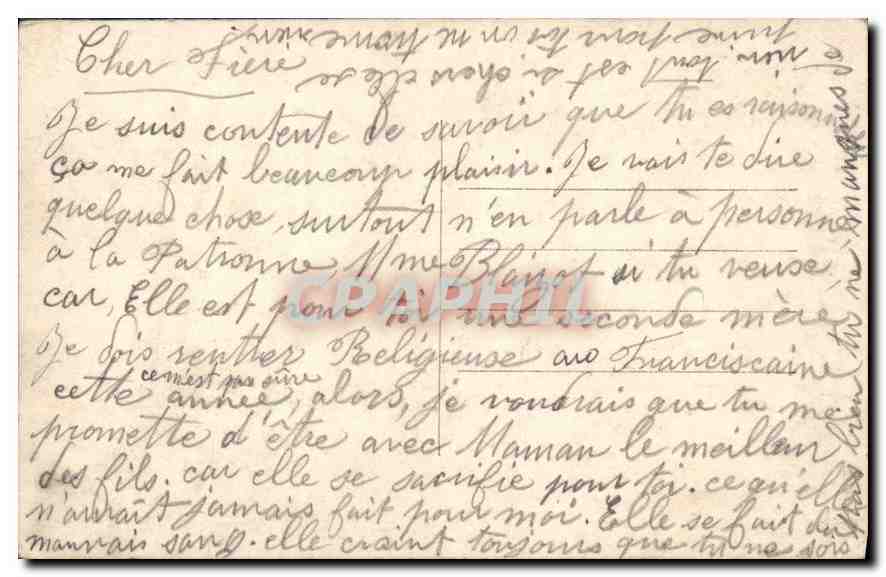 Cher Frère
Je suis contente de savoir que tu es raisonna
ça me fait beaucoup plaisir. Je vais te dire
quelque chose, surtout n'en parle à personne
à la Patronne Mme Blaizot si tu veuse,
car, Elle est pour toi une seconde mère,
Je dois rentrer Religieuse aux Franciscaine
ce n'est pas sûre
cette année, alors, je voudrais que tu me
promette d'être avec Maman le meilleur
des fils. car elle se sacrifie pour toi. ce qu'elle
n'aurait jamais fait pour moi. Elle se fait du
mauvais sang. elle craint toujours que tu ne sois
bien tu ne manques de
rien, tout est si cher elle se
prive pour toi
CPAPHIL